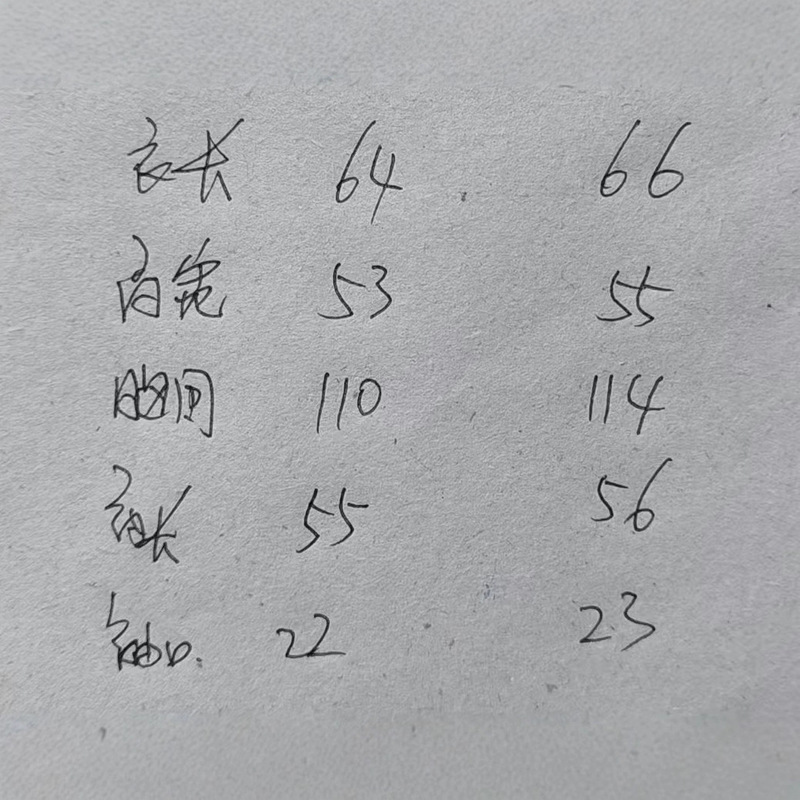 衣长 64 66
肩宽 53 55
胸围 110 114
袖长 55 56
袖口. 22 23